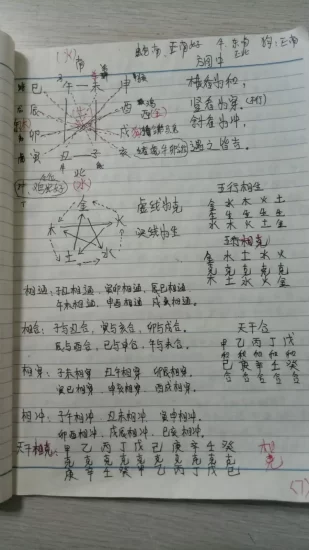 (火)
南
方圆中
巳 午 — 未 申
辰 酉
卯 戌
寅 丑 — 子 亥
横看为和,
竖看为穿,
斜看为冲,
遇之皆吉。
(水)
金
木 水
土 火
虚线为克
实线为生
五行相生
金 水 木 火 土
生 生 生 生 生
水 木 火 土 金
五行相克
金 木 土 水 火
克 克 克 克 克
木 土 水 火 金
相邻:子丑相邻、寅卯相邻、辰巳相邻
午未相邻、申酉相邻、戌亥相邻。
相合:子与丑合、寅与亥合、卯与戌合。
辰与酉合、巳与申合、午与未合。
天干合
甲 乙 丙 丁 戊
和 和 和 和 和
己 庚 辛 壬 癸
合 合 合 合 合
相穿:子未相穿 丑午相穿 卯辰相穿
寅巳相穿 申亥相穿、酉戌相穿
相冲:子午相冲 丑未相冲 寅申相冲
卯酉相冲、戌辰相冲、巳亥相冲。
天干相克:甲 乙 丙 丁 戊 己 庚 辛 壬 癸
克 克 克 克 克 克 克 克 克 克
庚 辛 壬 癸 甲 乙 丙 丁 戊 己
相克